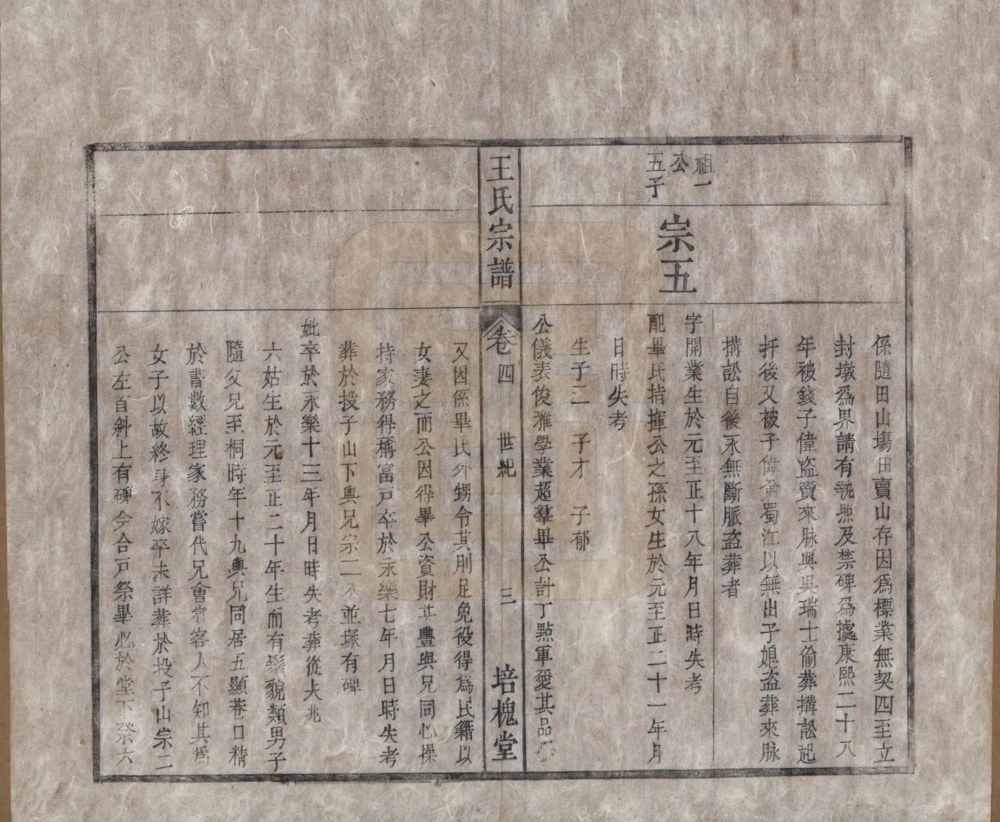 係隨田山塲田賣山存因爲標業無契四至立
封墩爲界請有執照及禁碑爲據康熙二十八
年被錢子偉盜賣來脉與吳瑞士偷葬搆訟起
扦後又被子偉侖蜀江以無出子媳盜葬來脉
搆訟自後永無斷脈盜葬者
祖一
公
五子
宗五
字開業生於元至正十八年月日時失考
配畢氏指揮公之孫女生於元至正二十一年月
日時失考
生子二 子才 子郁
公儀表俊雅學業超羣畢公計丁㸃軍愛其品
王氏宗譜
卷四 世紀 三 培槐堂
又因係畢氏外甥令其削足免役得爲民籍以
女妻之而公因得畢公資財甚豐與兄同心操
持家務得稱富戸卒於永樂七年月日時失考
葬於投子山下與兄宗二公並塚有碑
妣卒於永樂十三年月日時失考葬從夫兆
六姑生於元至正二十年生而有鬚貌類男子
隨父兄至桐時年十九與兄同居五顯巷口精
於書數經理家務嘗代兄會客人不知其爲
女子以故終身不嫁卒未詳葬於投子山宗二
公左首斜上有碑今合戸祭畢必於堂下祭六